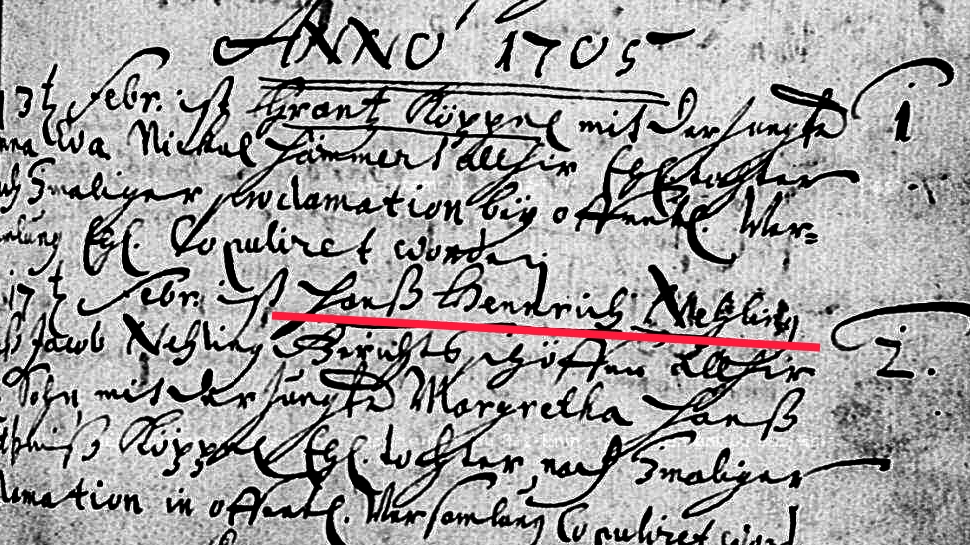 ANNO 1705
13t Febr. ist Frantz Köppel mit der jungfr 1
Eva Nickel Hammers allhir Ehl. tochter
3maliger proclamation bey offentl. Ver=
Ehl. Copuliret worden
17t Febr. ist Hanß Henrich Nehling 2.
Jacob Nehling Gerichts schöffen allhir
Sohn, mit der jungfr Margretha Hanß
Köppel Ehl. tochter, nach 3maliger
in offentl. Versamlung Copuliret word